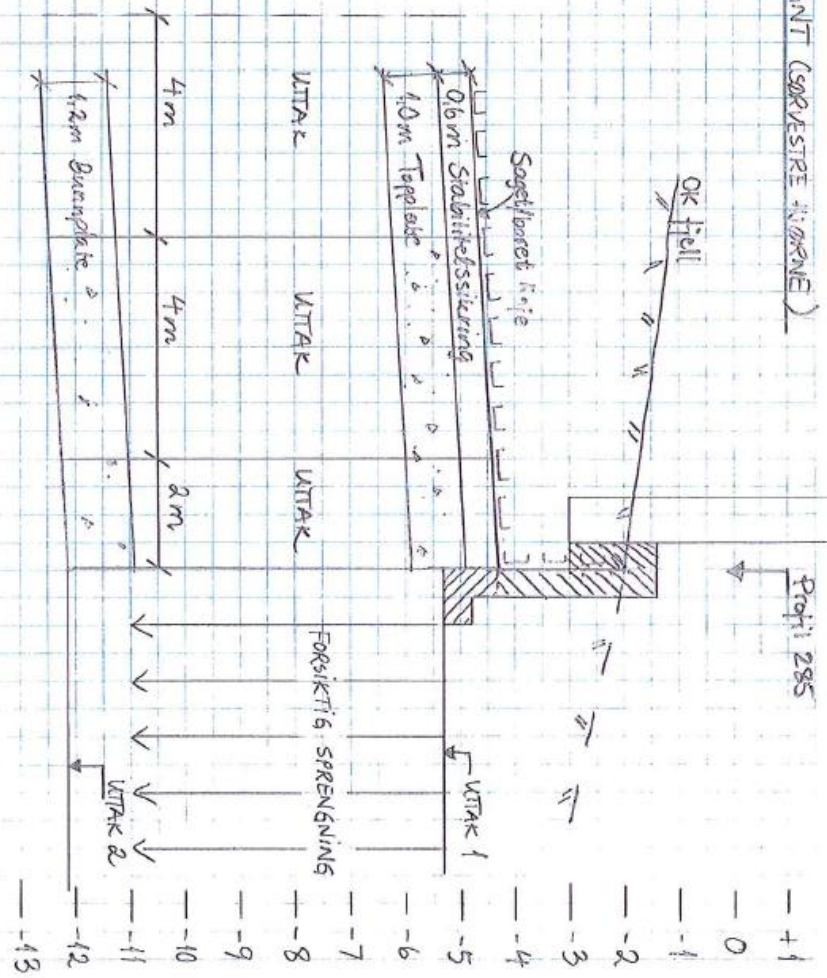 (SØRVESTRE HJØRNE)
Profil 285
OK fjell
Saget/boret linje
0,6m Stabilitetssikring
1,0m Topplate
UTTAK
UTTAK
UTTAK
4m
4m
2m
1,2m Bunnplate
UTTAK 1
FORSIKTIG SPRENGNING
UTTAK 2
+1
0
-1
-2
-3
-4
-5
-6
-7
-8
-9
-10
-11
-12
-13